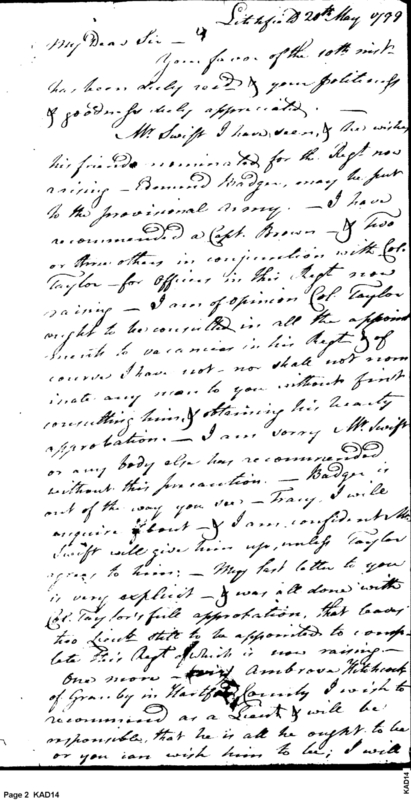 Litchfield 20th May 1799
My Dear Sir —
Your favor of the 10th inst
has been duly recd & your politeness
& goodness duly appreciated. —
Mr. Swift I have seen, & he wishes
his friends nominated, for the Regt now
raising — Badger, may be put
to the provisional army. — I have
recommended a Capt. Brown — & Two
or three others in conjunction with Col.
Taylor — for Officers in this Regt now
raising — I am of opinion Col. Taylor
ought to be consulted in all the appoint
ments to vacancies in his Regt & of
course I have not - nor shall not nom
inate any man to you without first
consulting him, & obtaining his hearty
approbation — I am sorry Mr. Swift
or any body else has recommended
without this precaution. — Badger is
out of the way you see — Tracy, I will
enquire about — & I am confident Mr
Swift will give him up, unless Taylor
agrees to him; — My last letter to you
is very explicit — & was all done with
Col. Taylor's full approbation, that leaves
two Lieuts still to be appointed to comp
lete this Regt which is now raising. —
One more — Ambrose Hitchcock
of Granby in Hartford County I wish to
recommend as a Lieut & will be
responsible, that he is all he ought to be
or you can wish him to be; I will
Page 2 KAD14
KAD14